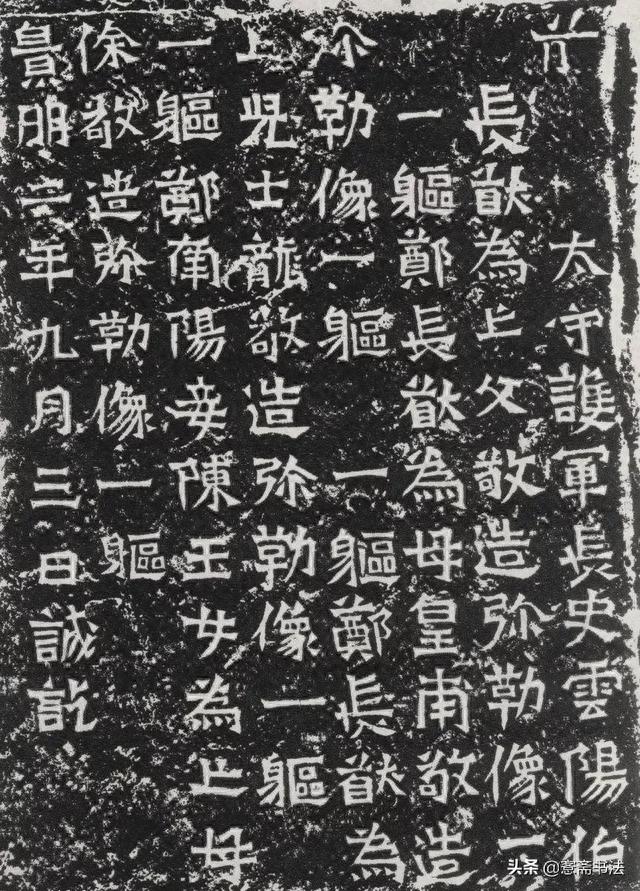 太守護軍長史雲陽伯
長猷為亡父敬造弥勒像一
一軀鄭長猷為母皇甫敬造
弥勒像一軀 一軀鄭長猷為
亡児士龍敬造弥勒像一軀
一軀鄭南陽妾陳玉女為亡母
徐敬造弥勒像一軀
景明二年九月三日誡訖
头条 @薏斋书法